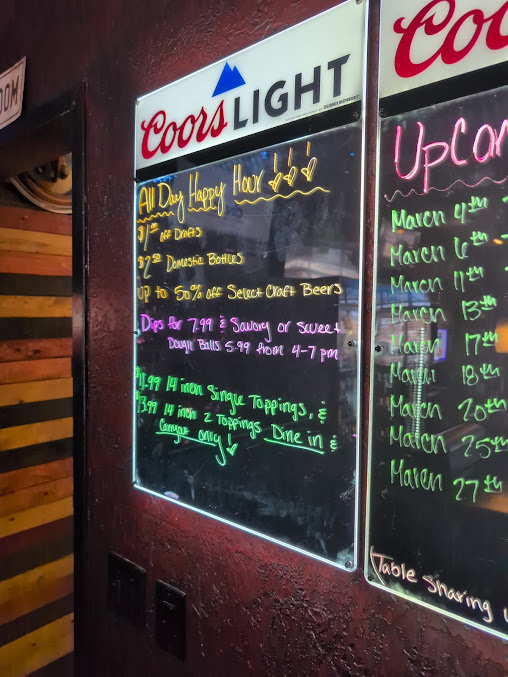 OOM
Coors LIGHT
All Day Happy Hour
$1.00 off Drafts
$2.50 Domestic Bottles
Up to 50% off Select Craft Beers
Dips for 7.99 & Savory or Sweet
Dough Balls 5.99 from 4-7 pm
$11.99 14 inch Single Toppings, &
$13.99 14 inch 2 Toppings Dine in &
Carryout only!
Coo
UpCom
March 4th
March 6th
March 11th
March 13th
March 17th
March 18th
March 20th
March 25th
March 27th
Table Sharing